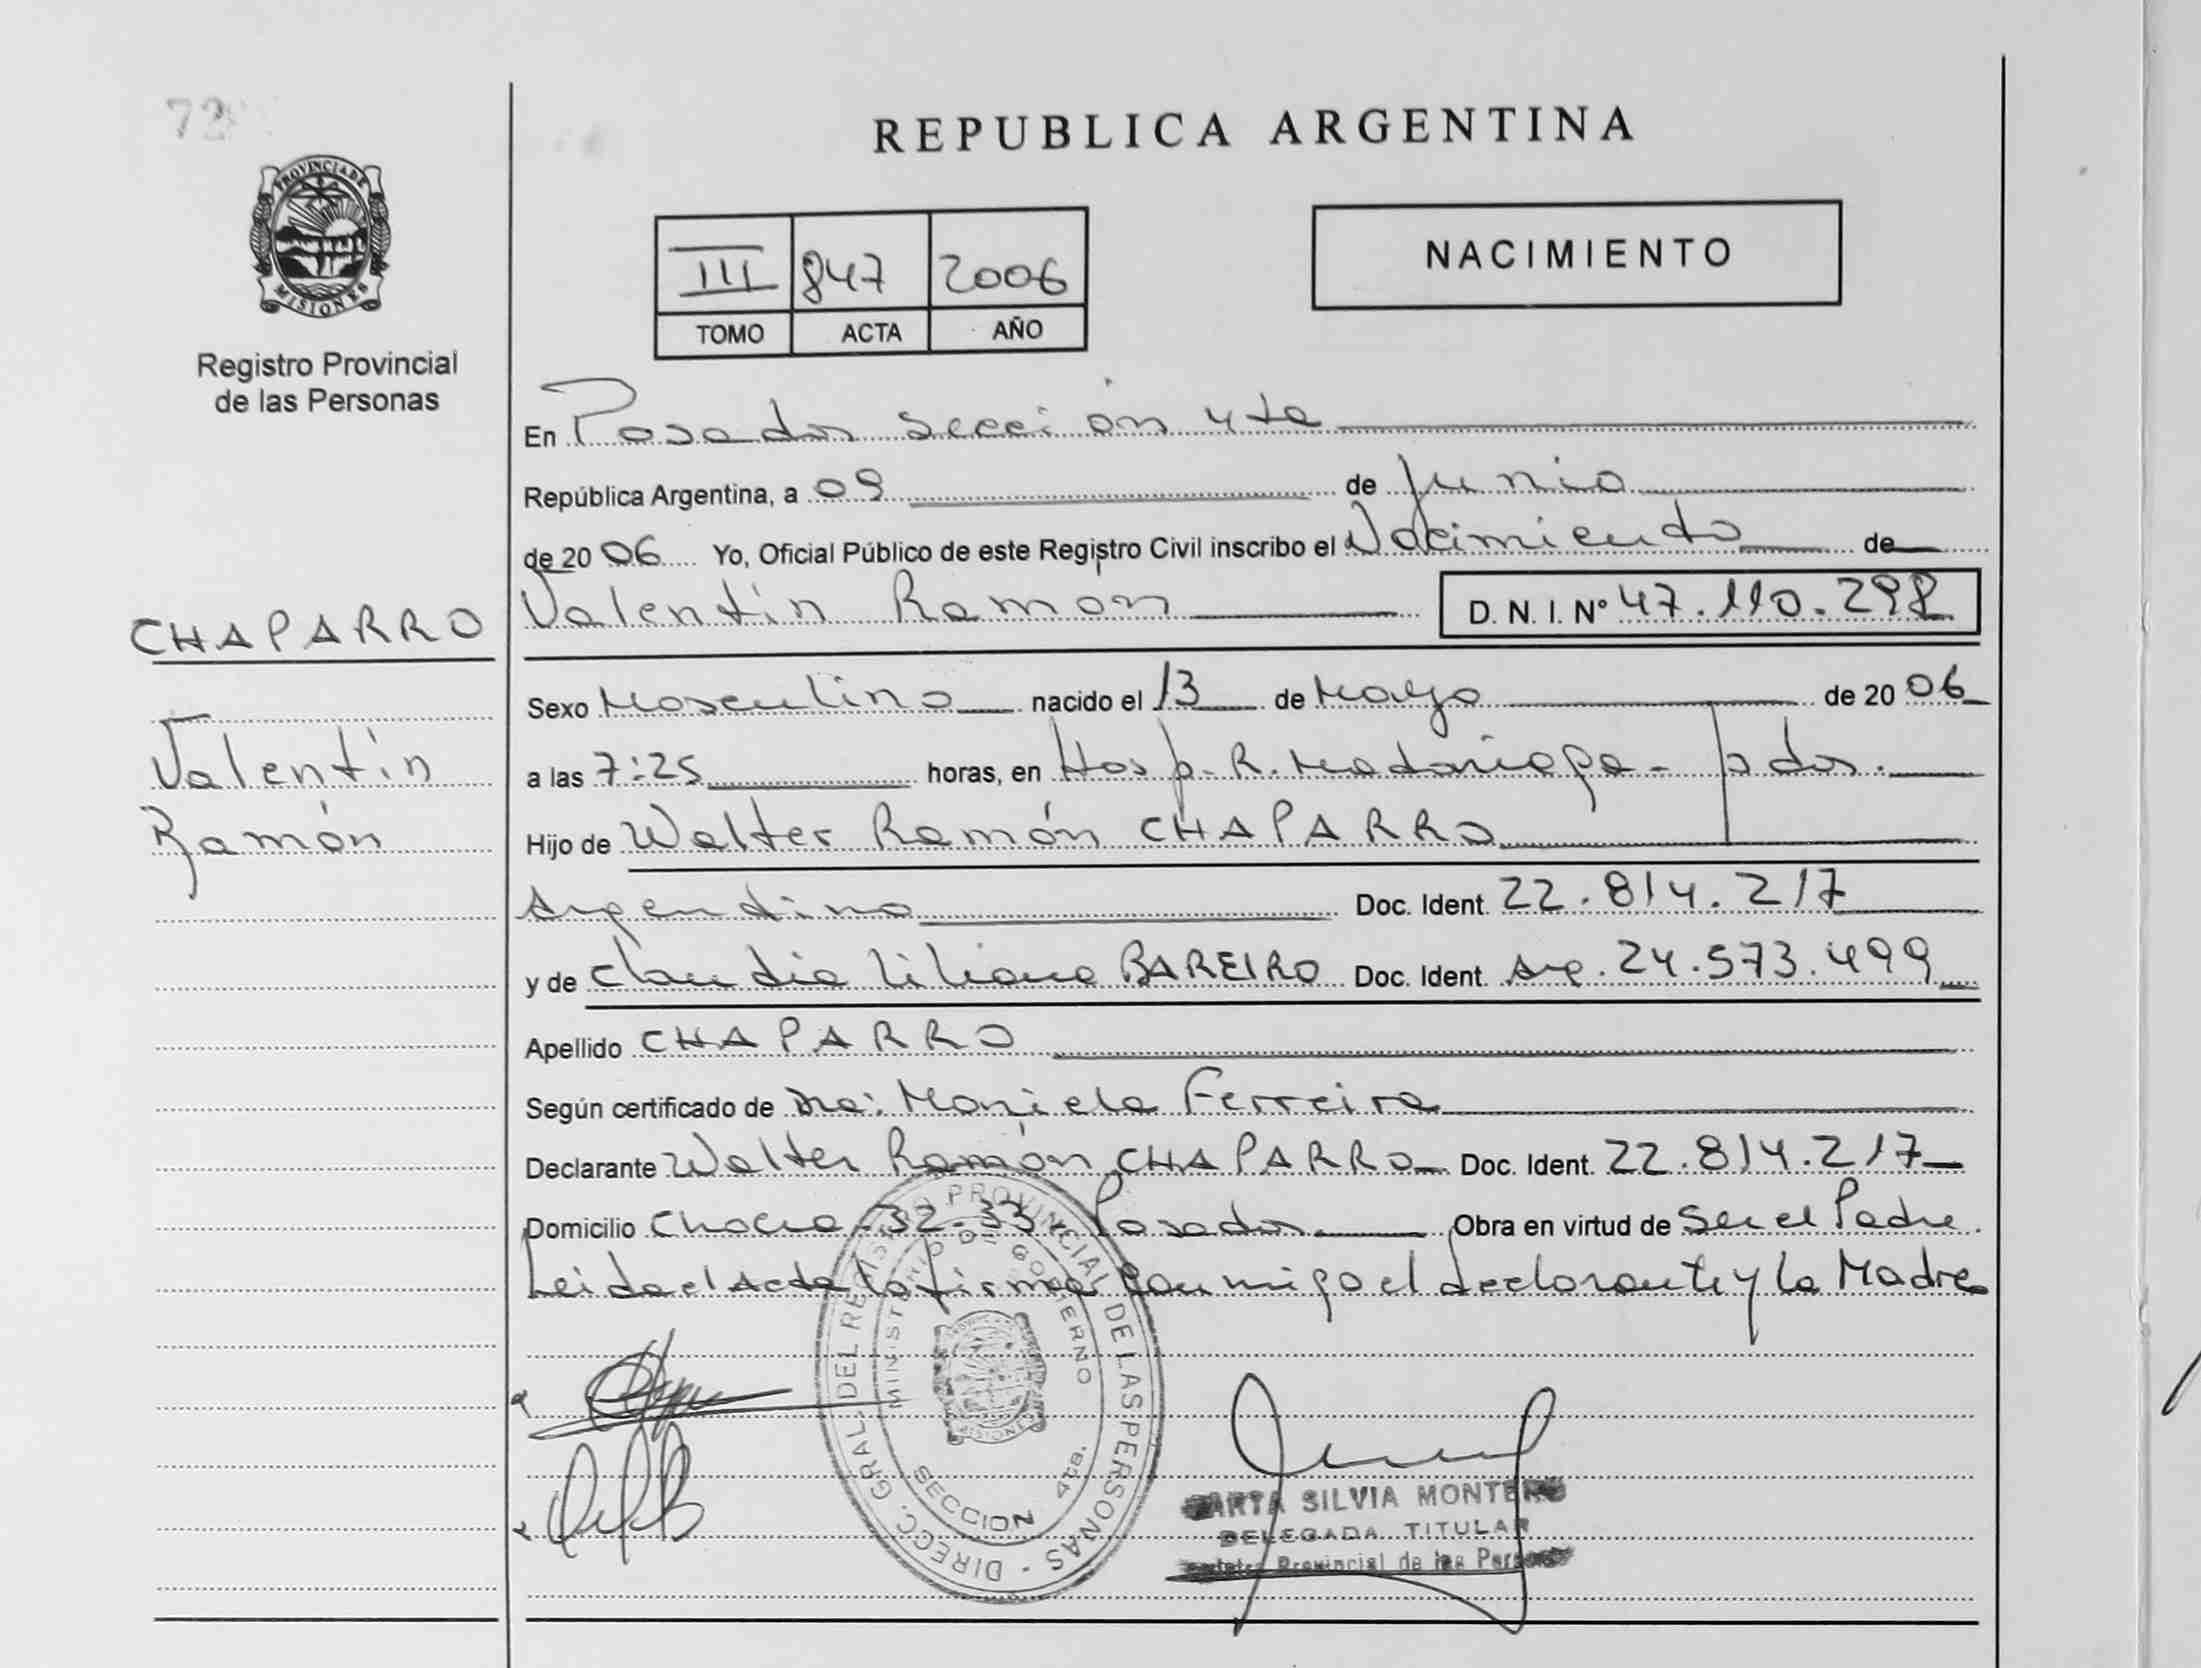 72
PROVINCIA DE
MISIONES
Registro Provincial
de las Personas
CHAPARRO
Valentín
Ramón
REPUBLICA ARGENTINA
III 847 2006
TOMO ACTA AÑO
NACIMIENTO
En Posadas sección 4ta
República Argentina, a 09 de Junio
de 2006 Yo, Oficial Público de este Registro Civil inscribo el Nacimiento de
Valentín Ramón D. N. I. Nº 47.110.298
Sexo Masculino nacido el 13 de Mayo de 2006
a las 7:25 horas, en Hosp. R. Madariaga - pdas.
Hijo de Walter Ramón CHAPARRO
Argentino Doc. Ident. 22.814.217
y de Claudia Liliana BAREIRO Doc. Ident. Arg. 24.573.499
Apellido CHAPARRO
Según certificado de Dra: Mariela Ferreira
Declarante Walter Ramón CHAPARRO Doc. Ident. 22.814.217
Domicilio Chacra 32-33- Posadas Obra en virtud de ser el Padre.
Leida el Acta la firma conmigo el declarante y la Madre
DIRECC. GRAL DEL REGISTRO PROVINCIAL DE LAS PERSONAS -
MINISTERIO DE GOBIERNO
MISIONES
SECCION 4ta.
MARTA SILVIA MONTERO
DELEGADA TITULAR
Registro Provincial de las Personas